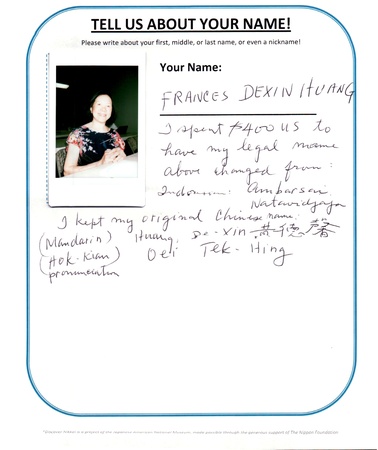 TELL US ABOUT YOUR NAME!
Please write about your first, middle, or last name, or even a nickname!
Your Name:
FRANCES DEXIN HUANG
I spent $400 US to
have my legal name
above changed from:
Indonesian: Ambarsari
Natawidjaja
I kept my original Chinese name:
(Mandarin) Huang, De-xin 黃德馨
(Hok-kian) Oei Tek-Hing
pronunciation